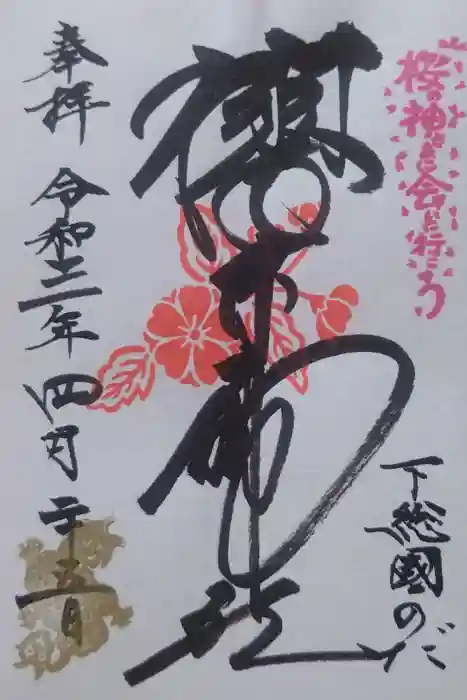 桜の神さまに会いに行こう
下総國のだ
櫻木神社
奉拝 令和三年四月二十五日